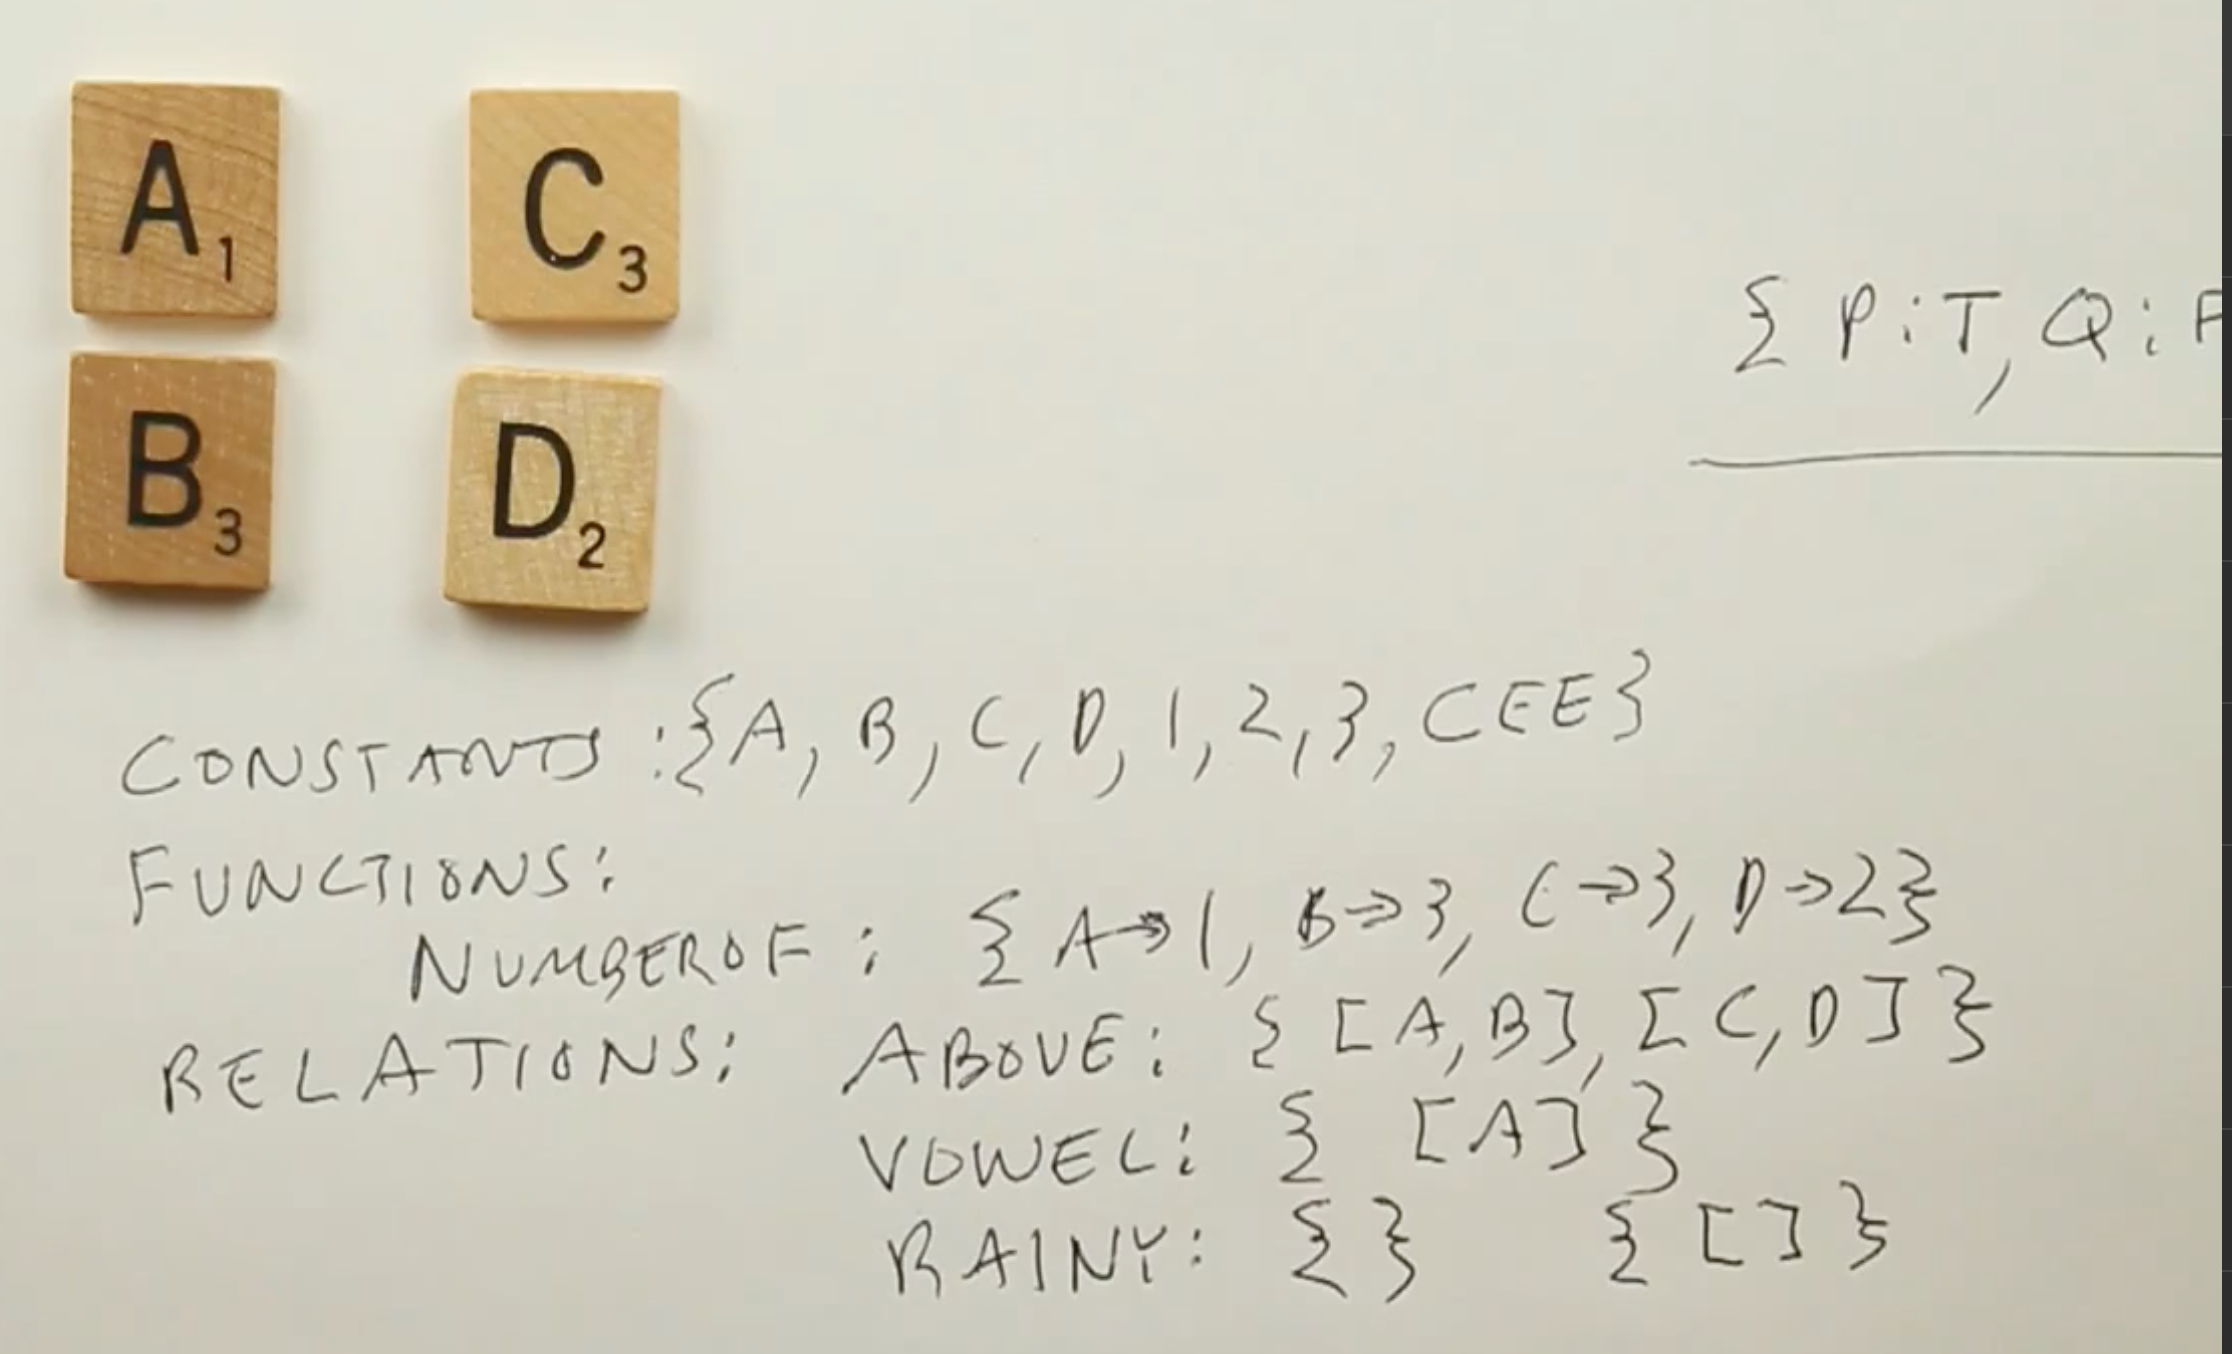 A1 C3
{ P:T, Q:F
B3 D2
CONSTANTS :{A, B, C, D, 1, 2, 3, CEE}
FUNCTIONS:
NUMBEROF : { A→1, B→3, C→3, D→2}
RELATIONS: ABOVE: { [A,B], [C,D] }
VOWEL: { [A] }
RAINY: { } { [ ] }